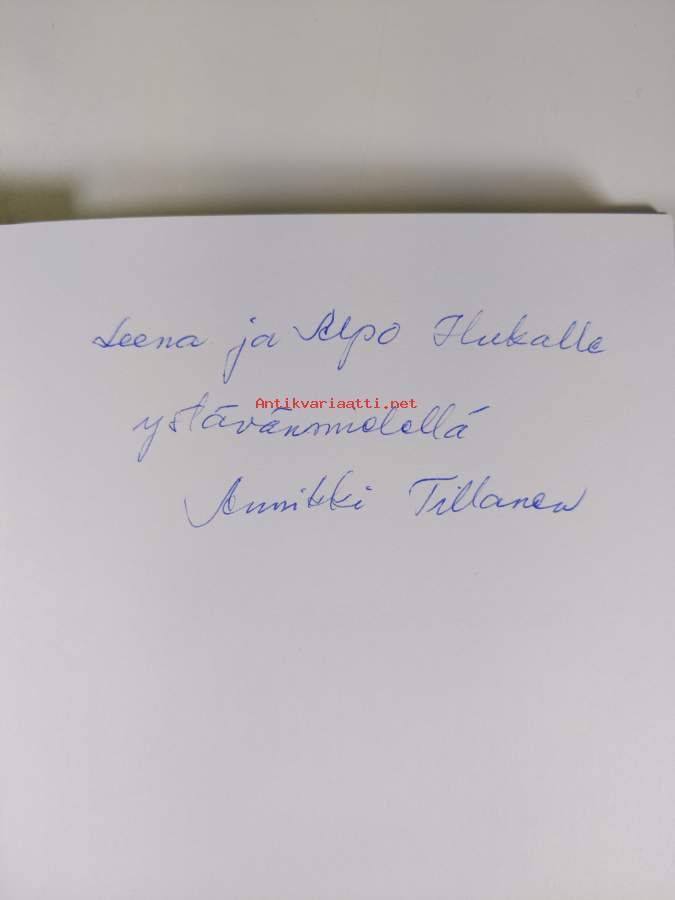 Leena ja Alpo Hukalle
Antikvariaatti.net
ystävänmielellä
Annikki Tillanen